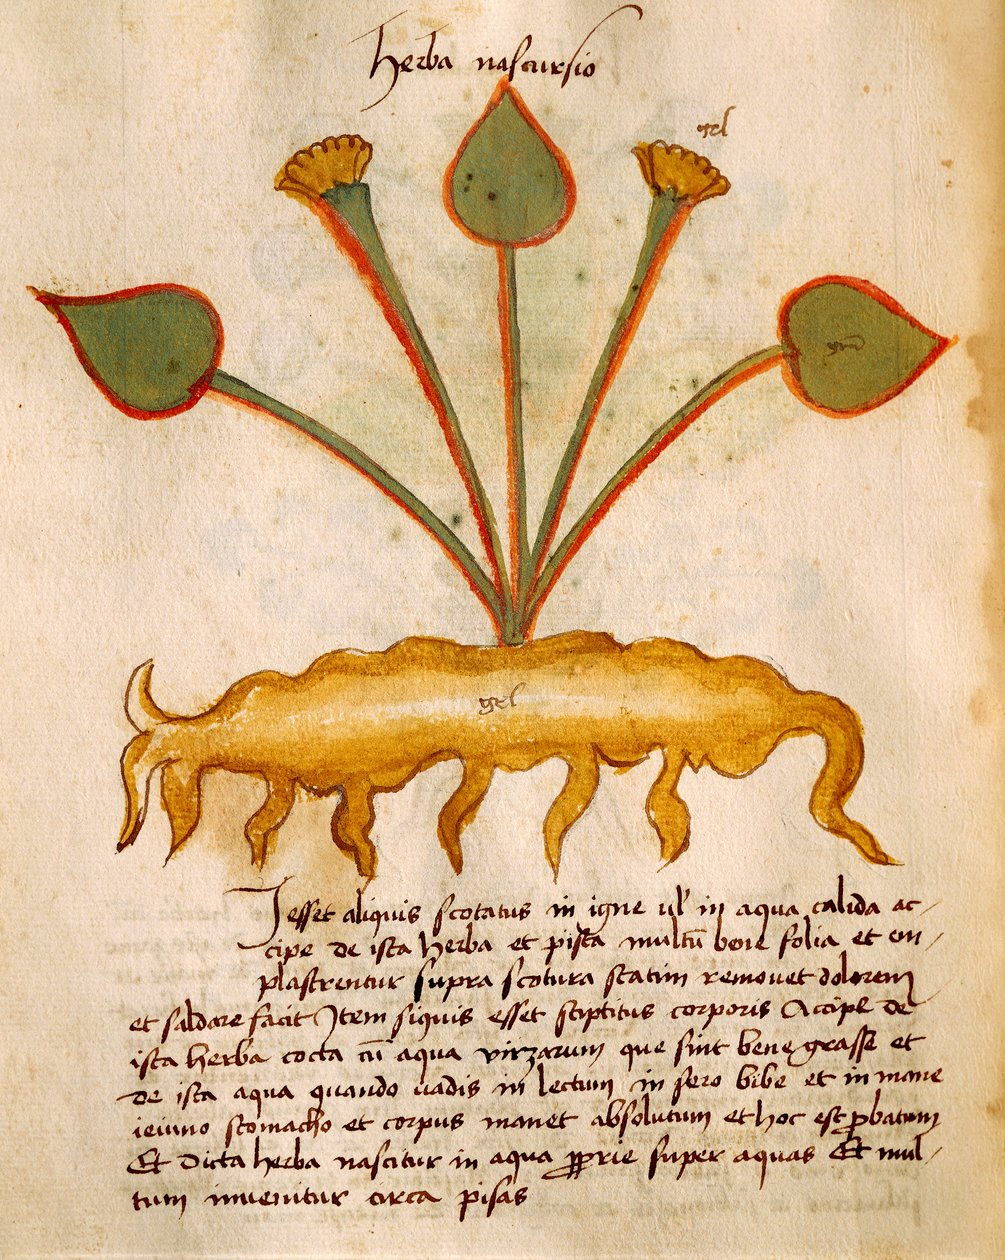 herba nascursio
gel
grn
gel
Iesset aliquis scotatus in igne ul' in aqua calida ac-
cipe de ista herba et pista multū bene folia et en-
plastrentur supra scotura statim removet dolorem
et saldare facit Item siquis esset stiptitus corporis Accipe de
ista herba cocta cū aqua virzarum que sint bene grasse et
de ista aqua quando vadis in lectum in sero bibe et in mane
ieiuno stomacho et corpus manet absolutum et hoc est probatum
Et dicta herba nascitur in aqua proprie super aquas Et mul-
tum invenitur circa pisas